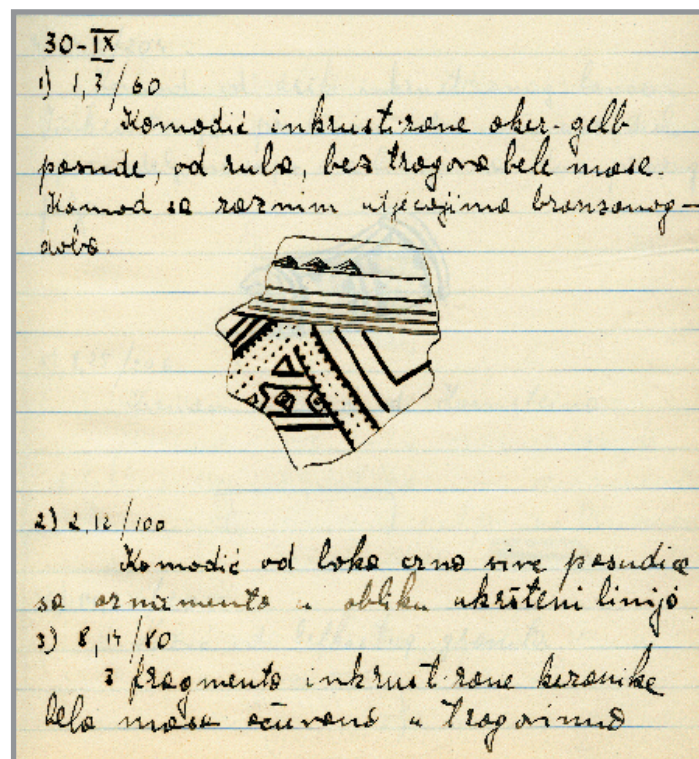 30-IX
1) 1,3/60
Komodić inkrustrirane oker-gelb
posude, od ruba, bez tragova bele mase.
Komad sa raznim utjecajima bronsanog-
doba.
2) 2,12/100
Komodić od boka crno sive posudice
sa ornamento u obliku ukršteni linija
3) 8,14/80
3 fragmenta inkrustrirane keramike
bela masa očuvana u tragovima